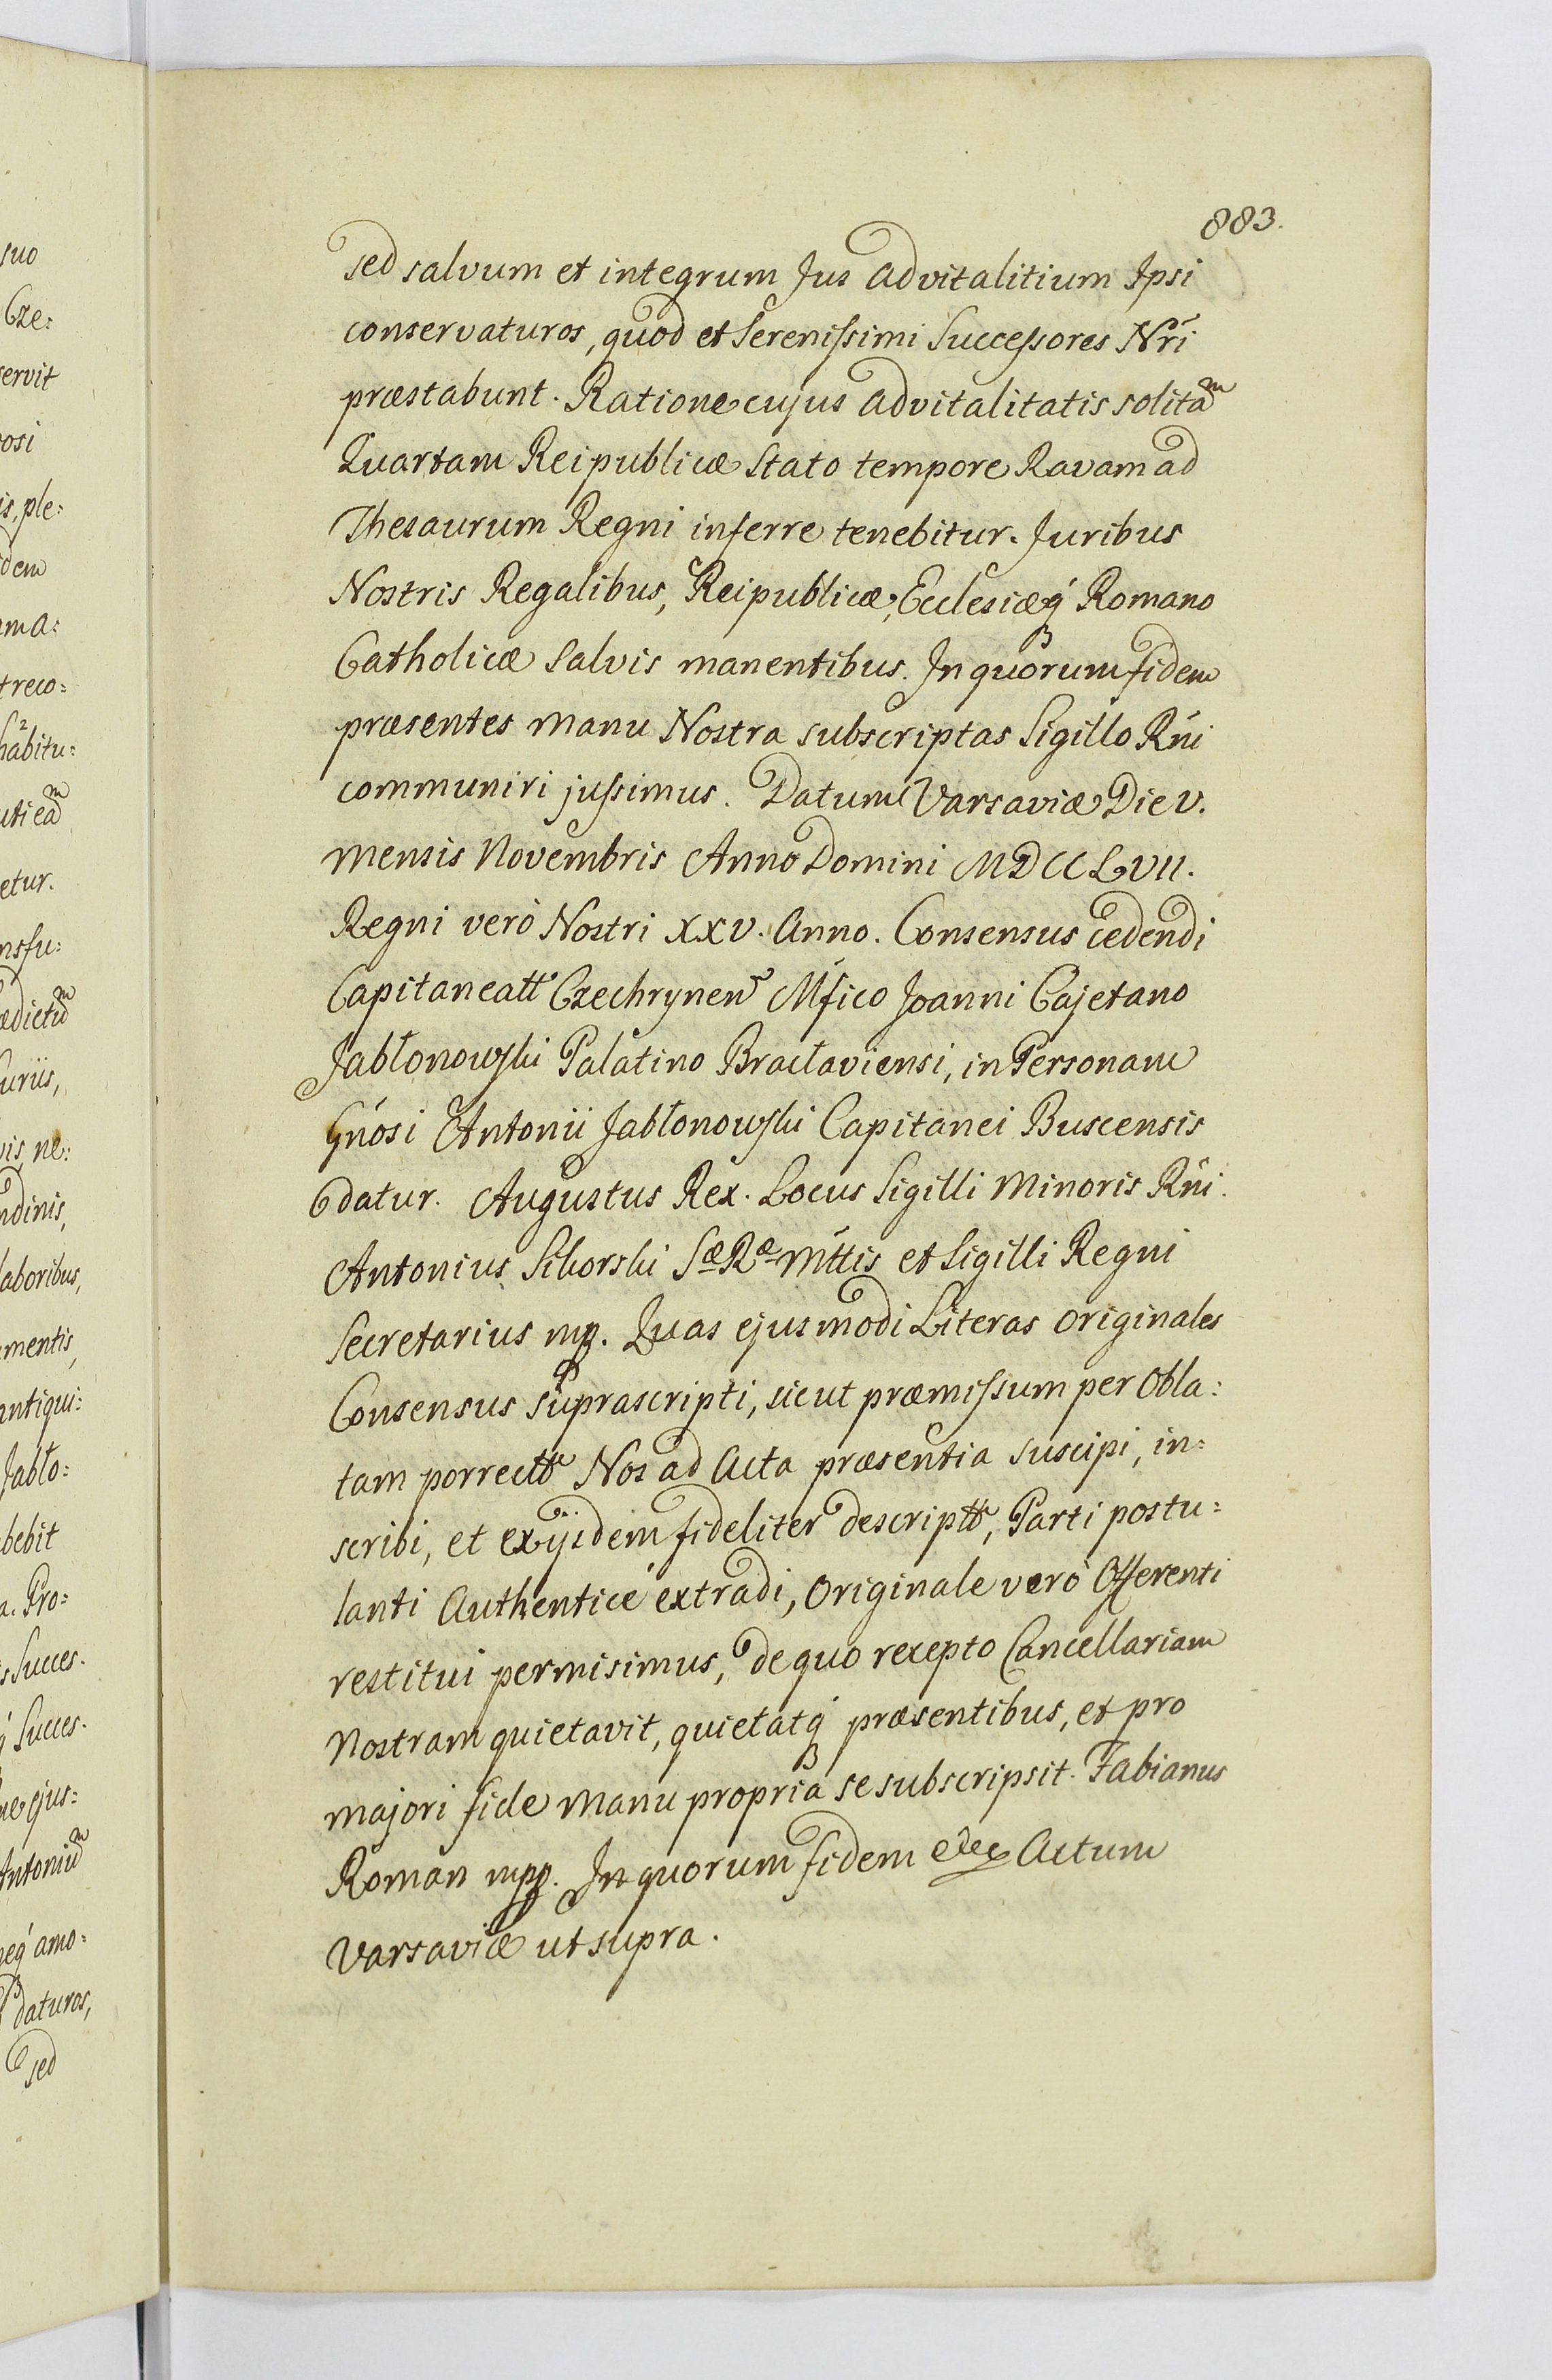 883.
sed salvum et integrum Jus advitalitium Ipsi
conservaturos, quod et Serenissimi Successores Nrĩ
præstabunt. Ratione cujus advitalitatis solitaᵐ
Quartam Reipublicæ stato tempore Ravam ad
Thesaurum Regni inferre tenebitur. Juribus
Nostris Regalibus, Reipublicæ, Ecclesiæq́ Romano
Catholicæ salvis manentibus. In quorum fidem
præsentes manu Nostra subscriptas Sigillo Rñi
communiri jussimus. Datum Varsaviæ Die V.
mensis Novembris Anno Domini MDCCLVII.
Regni verò Nostri XXV. Anno. Consensus cedendi
Capitaneatt Czechrynen Mfico Joanni Cajetano
Jabłonowski Palatino Bracłaviensi, in Personam
Gnosi Antonii Jabłonowski Capitanei Buscensis
datur. Augustus Rex. Locus Sigilli Minoris Rñi.
Antonius Sikorski Sæ Ræ Mttis et Sigilli Regni
Secretarius mp. Quas ejusmodi Literas originales
Consensus suprascripti, sicut præmissum per Obla:
tam porrectt Nos ad Acta præsentia suscipi, in:
scribi, et ex ijsdem fideliter descriptt, Parti postu:
lanti Authenticè extradi, Originale verò Offerenti
restitui permisimus, de quo recepto Cancellariam
Nostram quietavit, quietatq́ præsentibus, et pro
majori fide manu propria se subscripsit. Fabianus
Roman mpp. In quorum fidem etc Actum
Varsaviæ ut supra.
suo
Cze:
servit
osi
is, ple:
dem
ama:
t reco:
habitu:
uti eaᵐ
etur.
nsfu:
ædictuᵐ
uriis,
vis ne:
ndinis,
laboribus,
amentis,
antiqui:
Jabło:
bebit
a. Pro:
s Succes.
q́ Succes.
ejus:
Antoniuᵐ
neq́ amo:
daturos,
sed